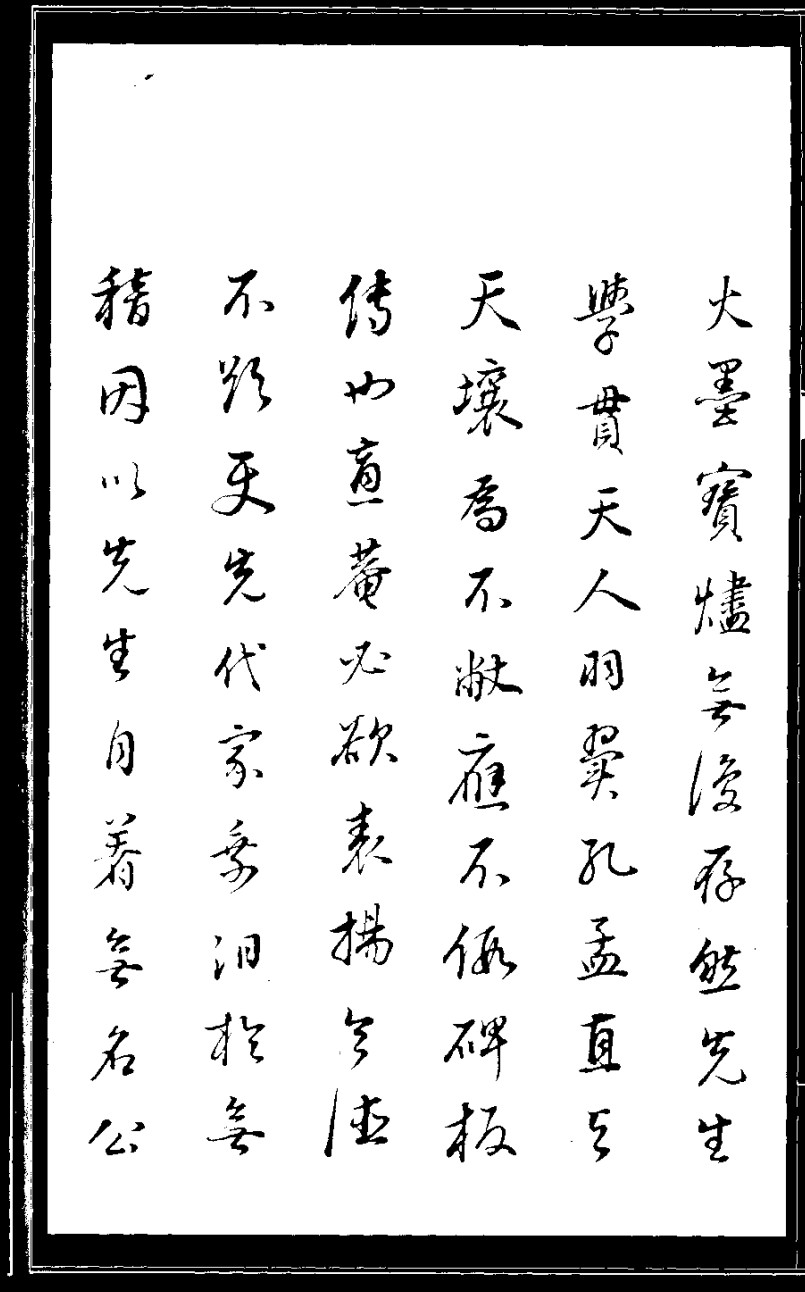 火墨寶燼無復存然先生
學貫天人羽翼孔孟直與
天壤為不敝應不假碑板
傳也直菴必欲表揚令德
不欲更先代家乘汨於無
稽因以先生自著無名公